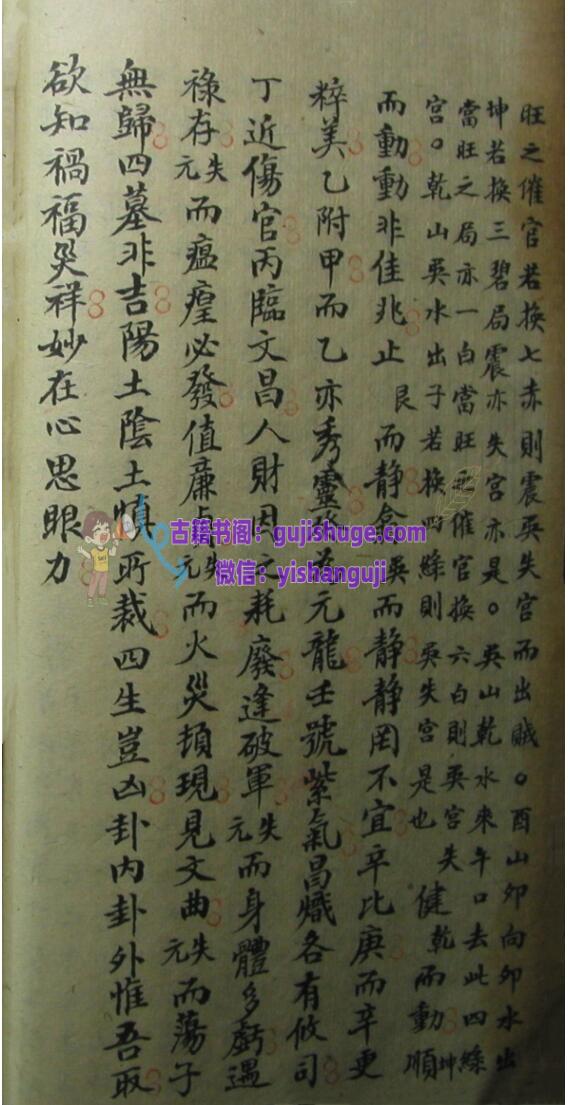 旺之催官若換七赤則震巽失宮而出賊。酉山卯向卯水出
坤若換三碧局震亦失宮亦是。巽山乾水來午口去此四綠
當旺之局亦一白當旺催官換六白則巽宮失
宮。乾山巽水出子若換四綠則巽失宮是也 健乾而動順坤
而動動非佳兆止艮而靜巽而靜靜罔不宜辛比庚而辛更
粹美乙附甲而乙亦秀靈元龍壬號紫氣昌熾各有攸司
丁近傷官丙臨文昌人財因之耗廢逢破軍失元而身體多虧遇
祿存失元而瘟㾮必發值廉貞失元而火災頓現見文曲失元而蕩子
無歸四墓非吉陽土陰土慎所裁四生豈凶卦內卦外惟吾取
欲知禍福災祥妙在心思眼力
古籍书阁：gujishuge.com
微信：yishanguji